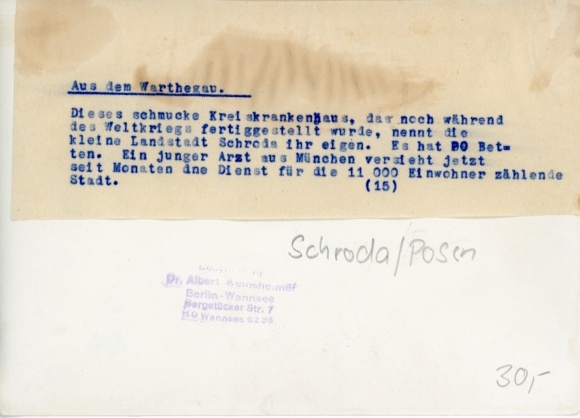 Aus dem Warthegau.
Dieses schmucke Kreiskrankenhaus, das noch während
des Weltkriegs fertiggestellt wurde, nennt die
kleine Landstadt Schroda ihr eigen. Es hat 90 Bet=
ten. Ein junger Arzt aus München versieht jetzt
seit Monaten dne Dienst für die 11 000 Einwohner zählende
Stadt. (15)
Schroda/Posen
Dr. Albert
Berlin-Wannsee
Bergstücker Str. 7
Wannsee
30,-